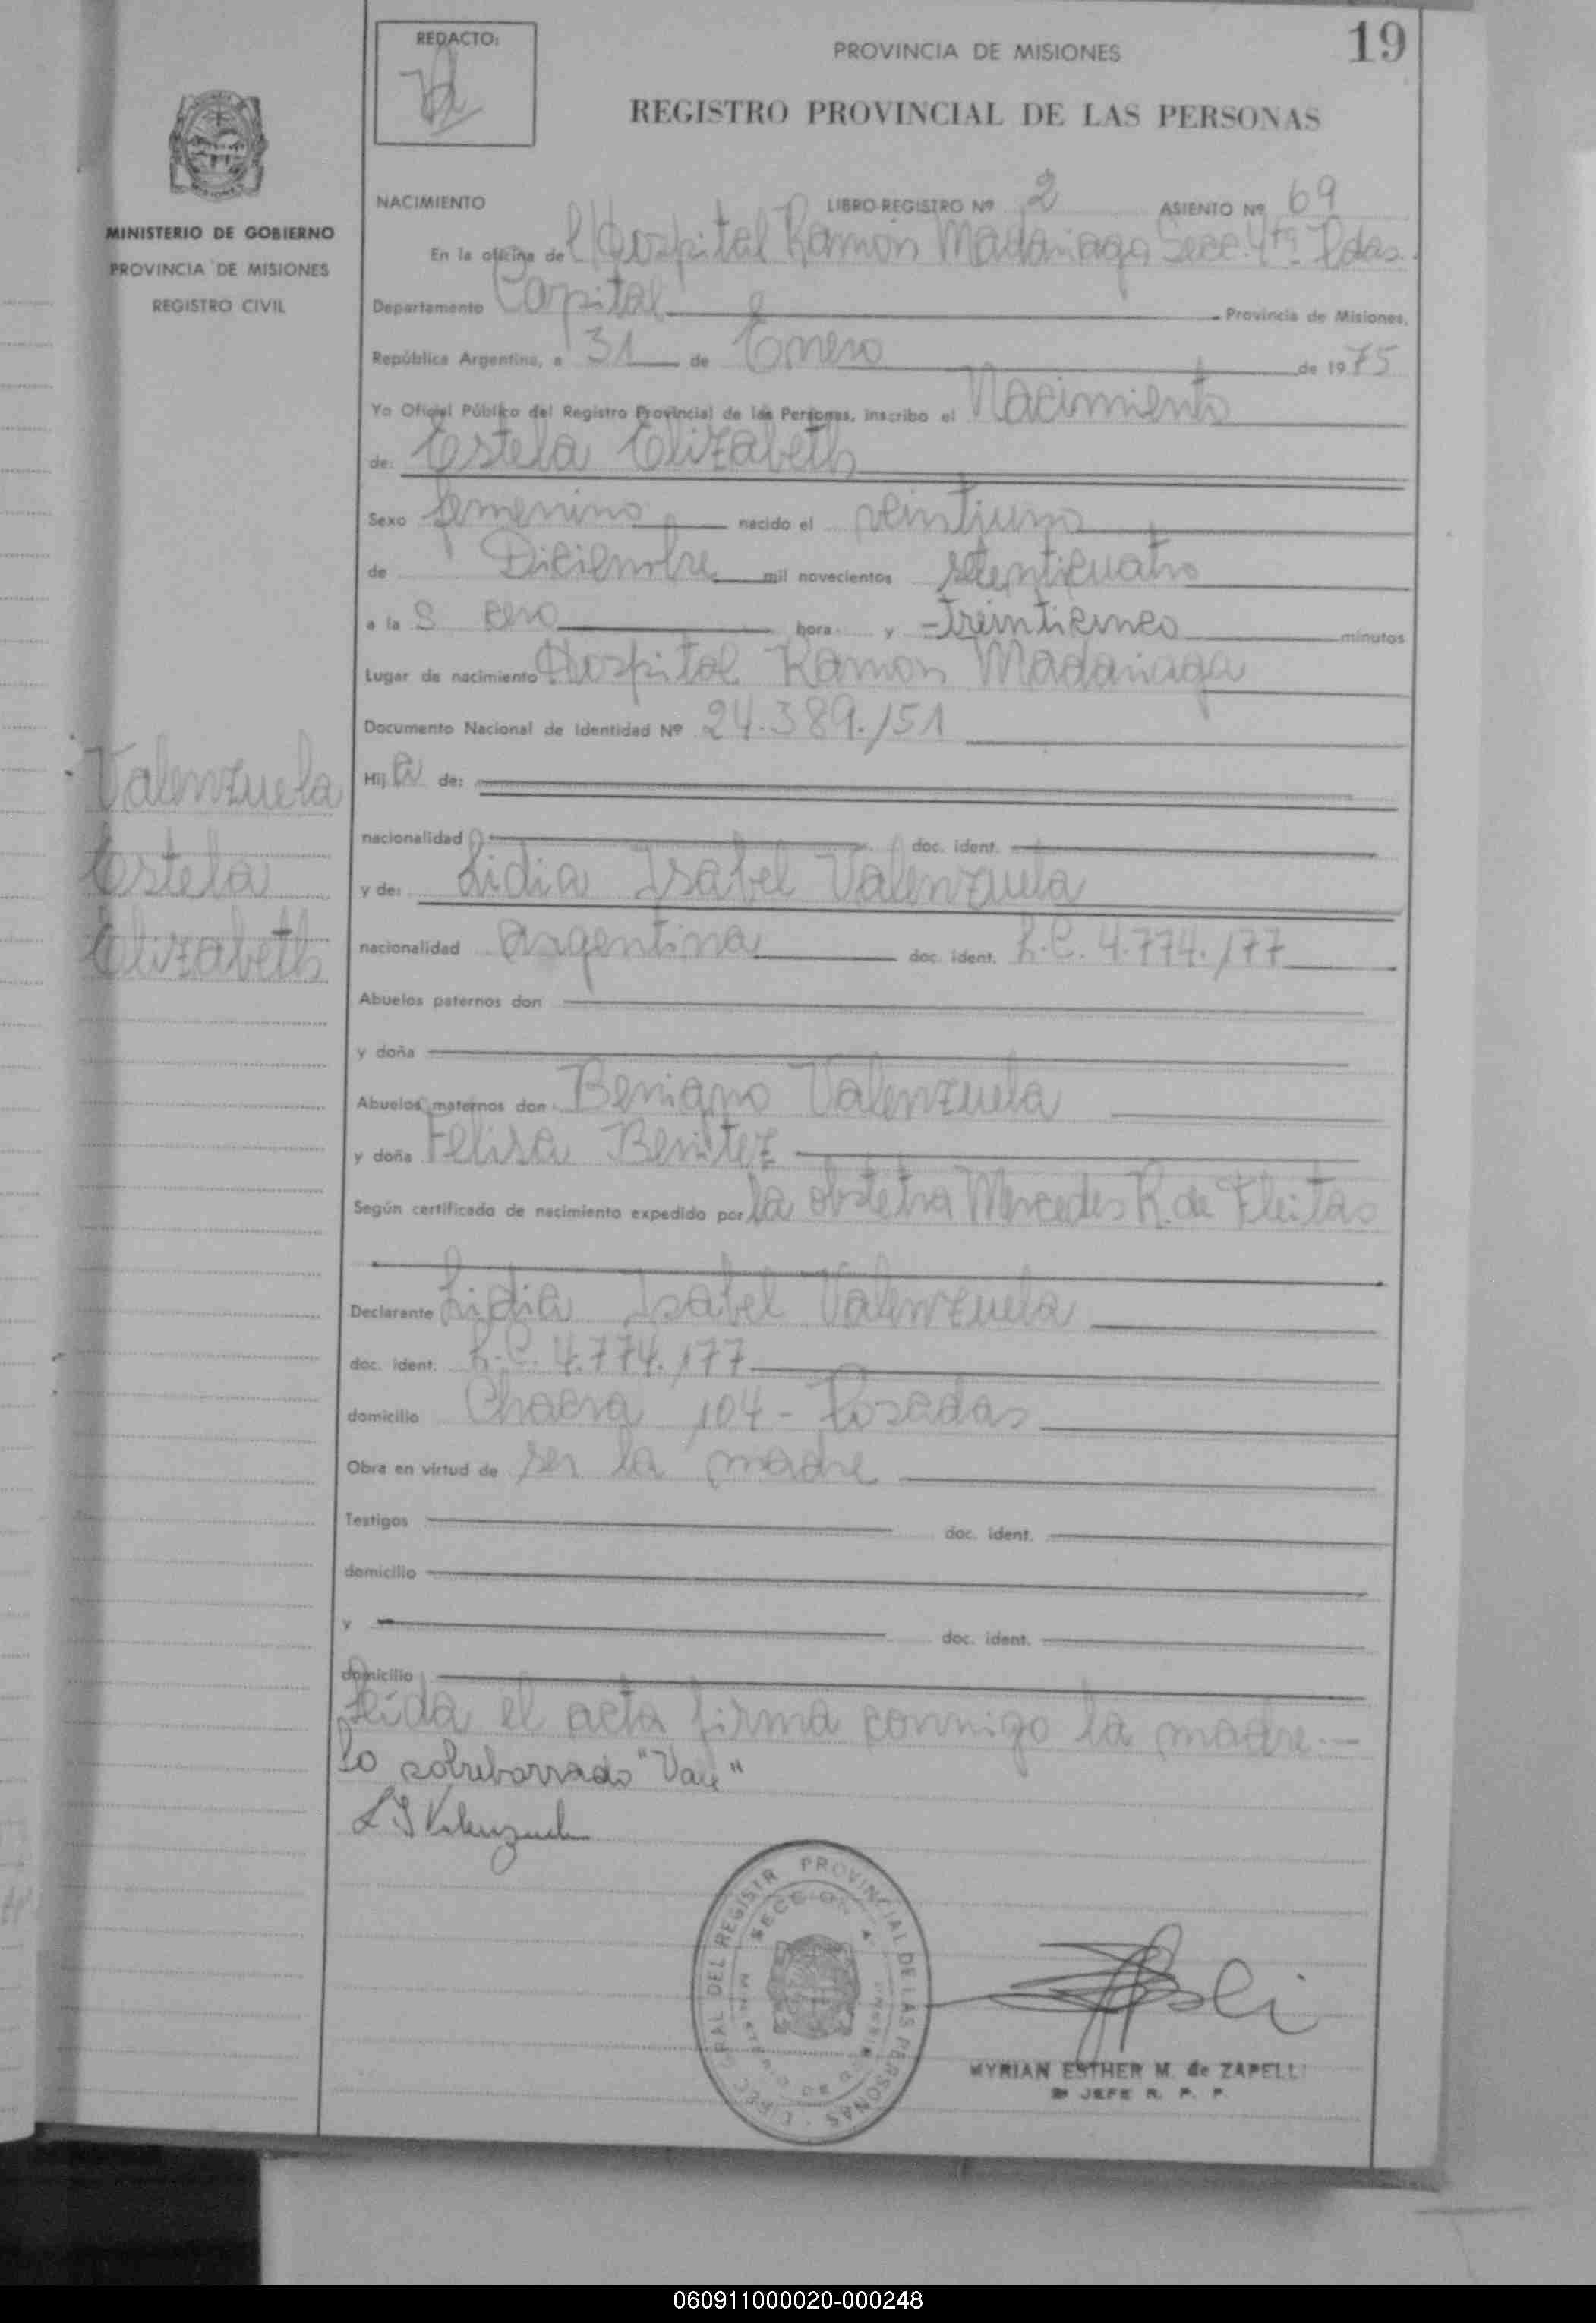 19
REDACTO:
PROVINCIA DE MISIONES
REGISTRO PROVINCIAL DE LAS PERSONAS
MINISTERIO DE GOBIERNO
PROVINCIA DE MISIONES
REGISTRO CIVIL
NACIMIENTO LIBRO-REGISTRO Nº 2 ASIENTO Nº 69
En la oficina del Hospital Ramon Madariaga Secc. 4ta Pdas.
Departamento Capital Provincia de Misiones,
República Argentina, a 31 de Enero de 1975
Yo Oficial Público del Registro Provincial de las Personas, inscribo el Nacimiento
de: Estela Elizabeth
Sexo femenino nacido el veintiuno
de Diciembre mil novecientos setenticuatro
a la S cero hora y treinticinco minutos
Lugar de nacimiento Hospital Ramon Madariaga
Documento Nacional de Identidad Nº 24.389.151
Valenzuela
Estela
Elizabeth
Hija de:
nacionalidad doc. ident.
y de: Lidia Isabel Valenzuela
nacionalidad argentina doc. ident. L.C. 4.774.177
Abuelos paternos don
y doña
Abuelos maternos don Benigno Valenzuela
y doña Felisa Benitez
Según certificado de nacimiento expedido por la obstetra Mercedes R. de Fleitas
Declarante Lidia Isabel Valenzuela
doc. ident. L.C. 4.774.177
domicilio Chacra 104 - Posadas
Obra en virtud de ser la madre
Testigos doc. ident.
domicilio
y doc. ident.
domicilio
Leida el acta firma conmigo la madre.--
Lo sobreborrado "Vale"
L I Valenzuela
PROVINCIAL DE LAS PERSONAS
SECCION 4
MYRIAN ESTHER M. de ZAPELLI
JEFE R. P. P.
060911000020-000248